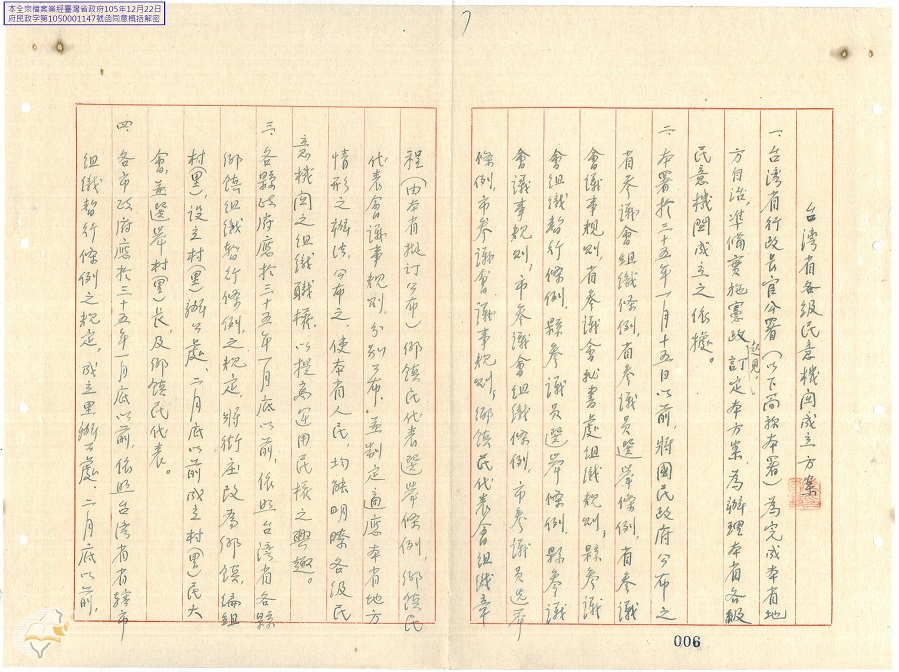 本全宗檔案業經臺灣省政府105年12月22日
府民政字第1050001147號函同意概括解密
台湾省各级民意機関成立方案
一、台湾省行政長官公署(以下簡称本署)為完成本省地
方自治,准備實施憲政起見,訂定本方案,為辦理本省各級
民意機関成立之依據。
二、本署於三十五年一月十五日以前,將國民政府公布之
省参議會組織條例,省参議員選舉條例,省参議
會議事規則,省参議會秘書處組織規則,縣参議
會組織暫行條例,縣参議員選舉條例,縣参議
會議事規則,市参議會組織條例,市参議員选举
條例,市参議會議事規則,鄉鎮民代表會組織章
程(由本省擬訂公布)鄉鎮民代表選举條例,鄉鎮民
代表會議事規則,分别公布,並制定適應本省地方
情形之辦法公布之,使本省人民,均能明瞭各級民
意機関之組織職權,以提高運用民權之興趣。
三、各縣政府應於三十五年一月底以前,依照台湾省各縣
鄉鎮組織暫行條例之規定,將街庄改為鄉鎮,編組
村(里),設立村(里)辦公處,二月底以前成立村(里)民大
會,並選舉村(里)長,及鄉鎮民代表。
四、各市政府應於三十五年一月底以前,依照台湾省省轄市
組織暫行條例之規定,成立里辦公處,二月底以前,
006